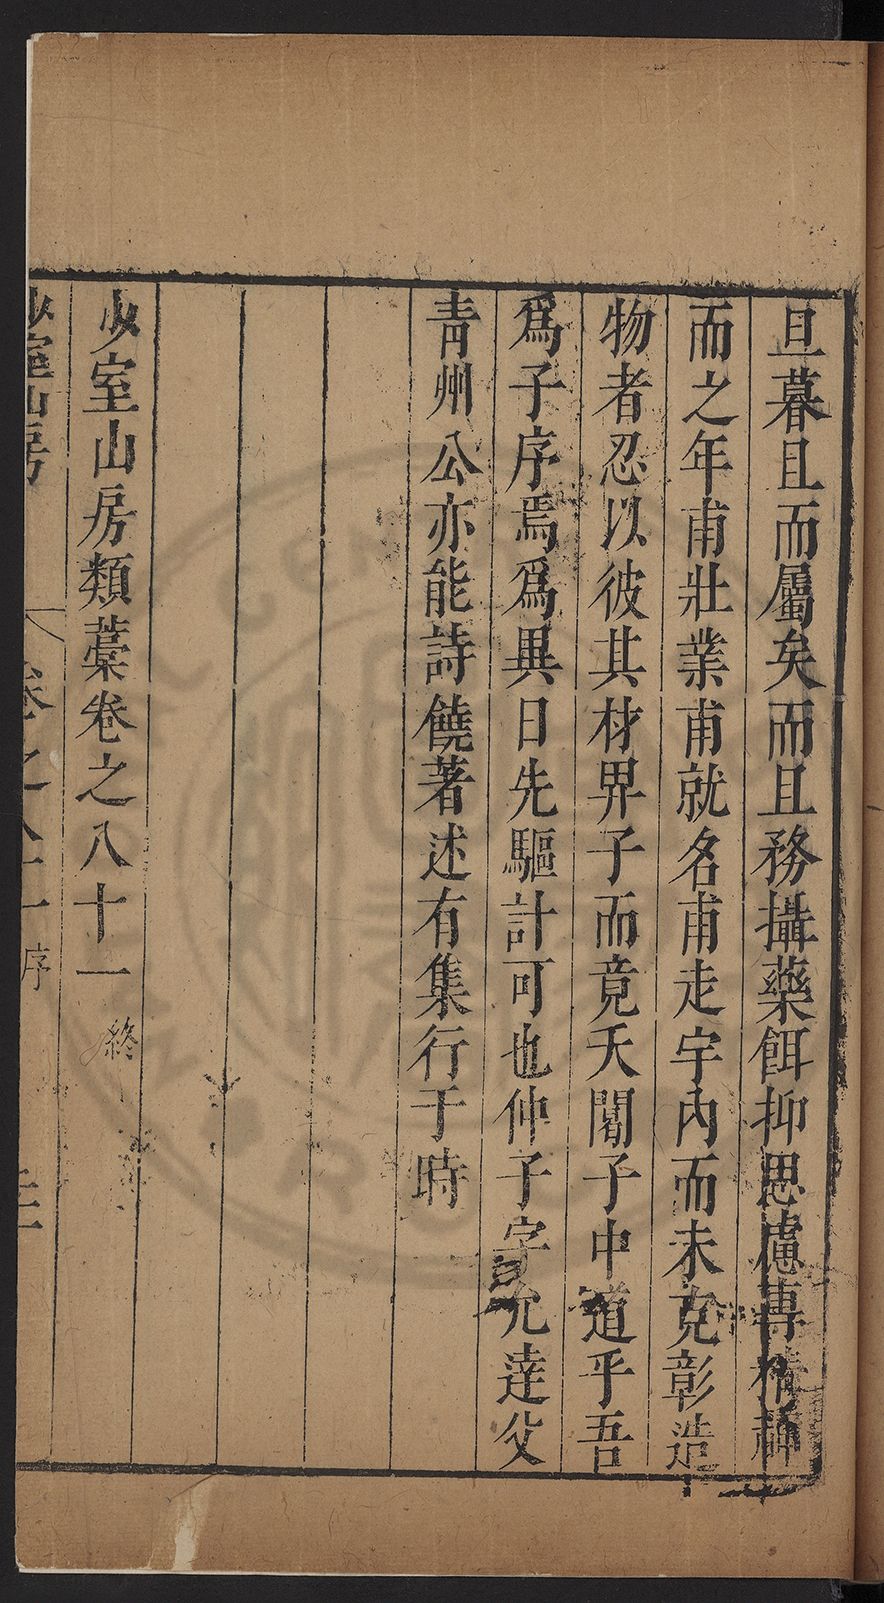 旦暮且而屬矣而且務攝藥餌抑思慮專精
而之年甫壯業甫就名甫走宇內而未克彰造
物者忍以彼其材畀子而竟夭閼子中道乎吾
爲子序焉爲異日先驅計可也仲子字允達父
青州公亦能詩饒著述有集行于時
少室山房類藁卷之八十一 終
少室山房 卷之八十一 序